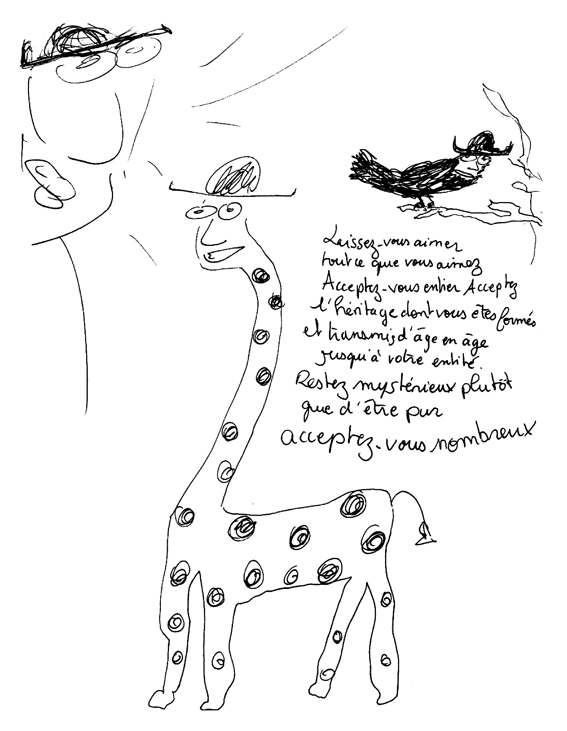 Laissez-vous aimer
tout ce que vous aimez
Acceptez-vous entier Acceptez
l'héritage dont vous êtes formés
et transmis d'âge en âge
jusqu'à votre entité.
Restez mystérieux plutôt
que d'être pur
acceptez-vous nombreux